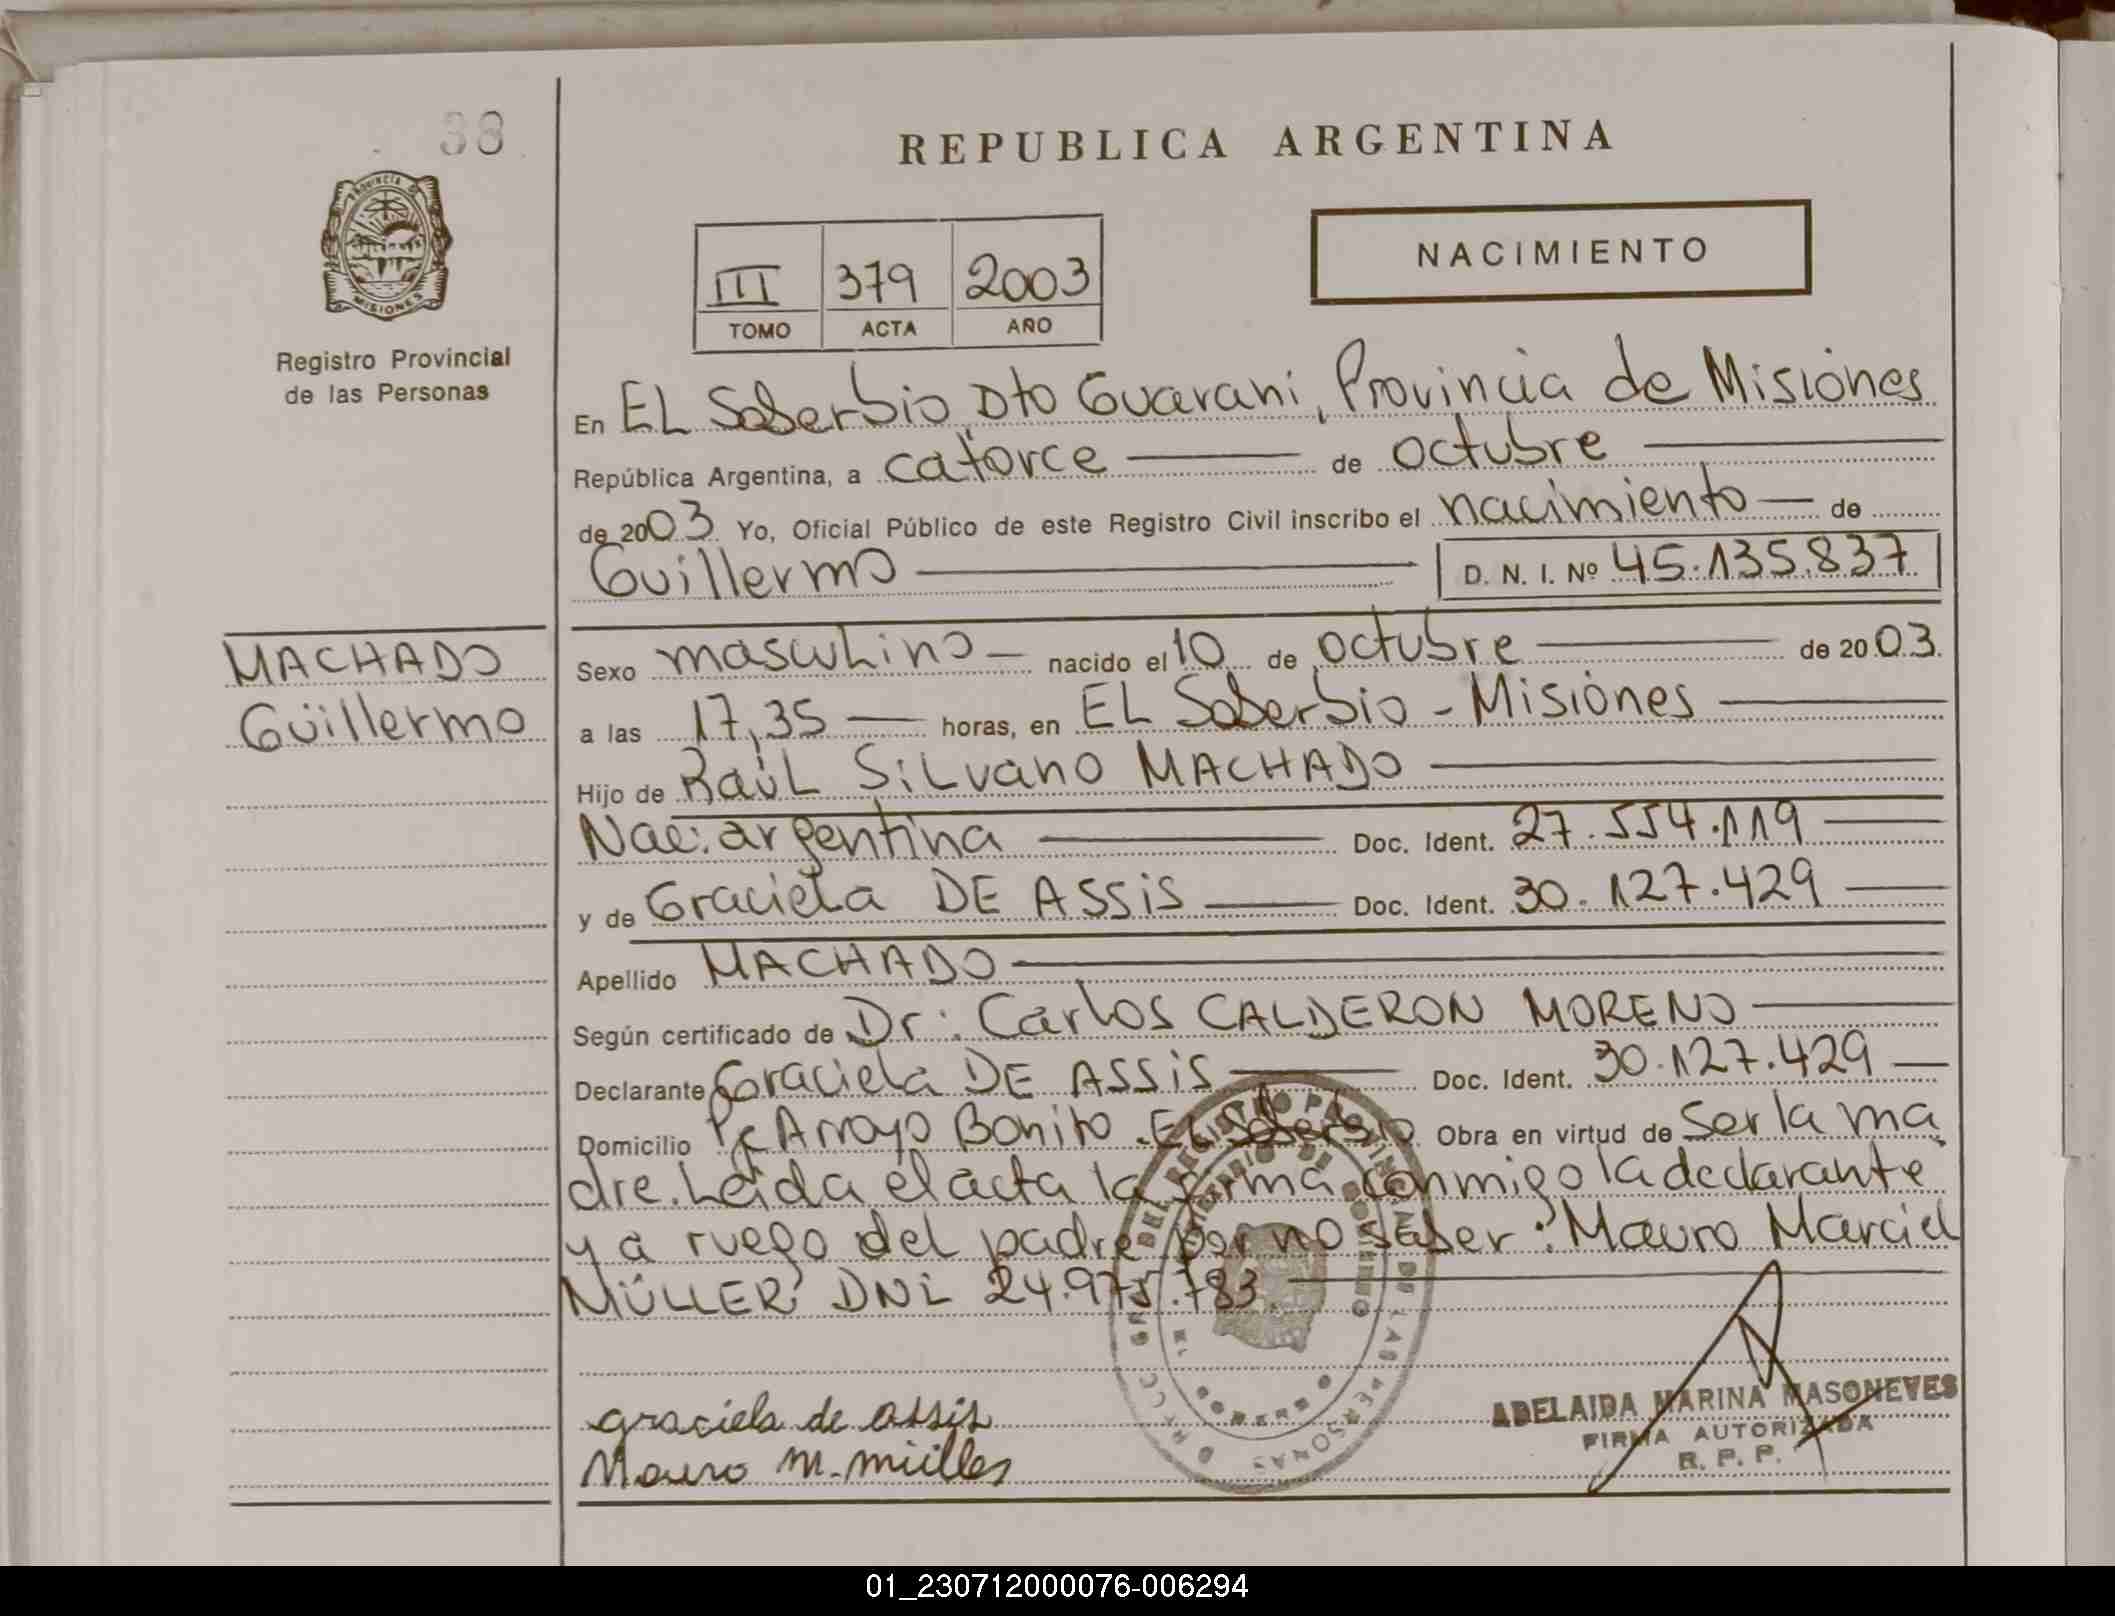 38
REPUBLICA ARGENTINA
PROVINCIA DE
MISIONES
Registro Provincial
de las Personas
III 379 2003
TOMO ACTA AÑO
NACIMIENTO
En EL Soberbio Dto Guarani, Provincia de Misiones
República Argentina, a catorce de octubre
de 2003 Yo, Oficial Público de este Registro Civil inscribo el nacimiento de
Guillermo D. N. I. Nº 45.135.837
MACHADO
Guillermo
Sexo masculino nacido el 10 de octubre de 2003.
a las 17,35 horas, en EL Soberbio - Misiones
Hijo de Raúl Silvano MACHADO
Nac: argentina Doc. Ident. 27.554.119
y de Graciela DE ASSIS Doc. Ident. 30.127.429
Apellido MACHADO
Según certificado de Dr: Carlos CALDERON MORENO
Declarante Graciela DE ASSIS Doc. Ident. 30.127.429
Domicilio Arroyo Bonito. EL Soberbio Obra en virtud de Ser la ma
dre. Leida el acta la firma conmigo la declarante
y a ruego del padre por no saber: Mauro Marciel
MÜLLER DNI 24.975.783
REGISTRO PROVINCIAL DE LAS PERSONAS
MINISTERIO DE GOBIERNO
graciela de assis
Mauro M. müller
ADELAIDA MARINA MASONEVES
FIRMA AUTORIZADA
R. P. P.
01_230712000076-006294